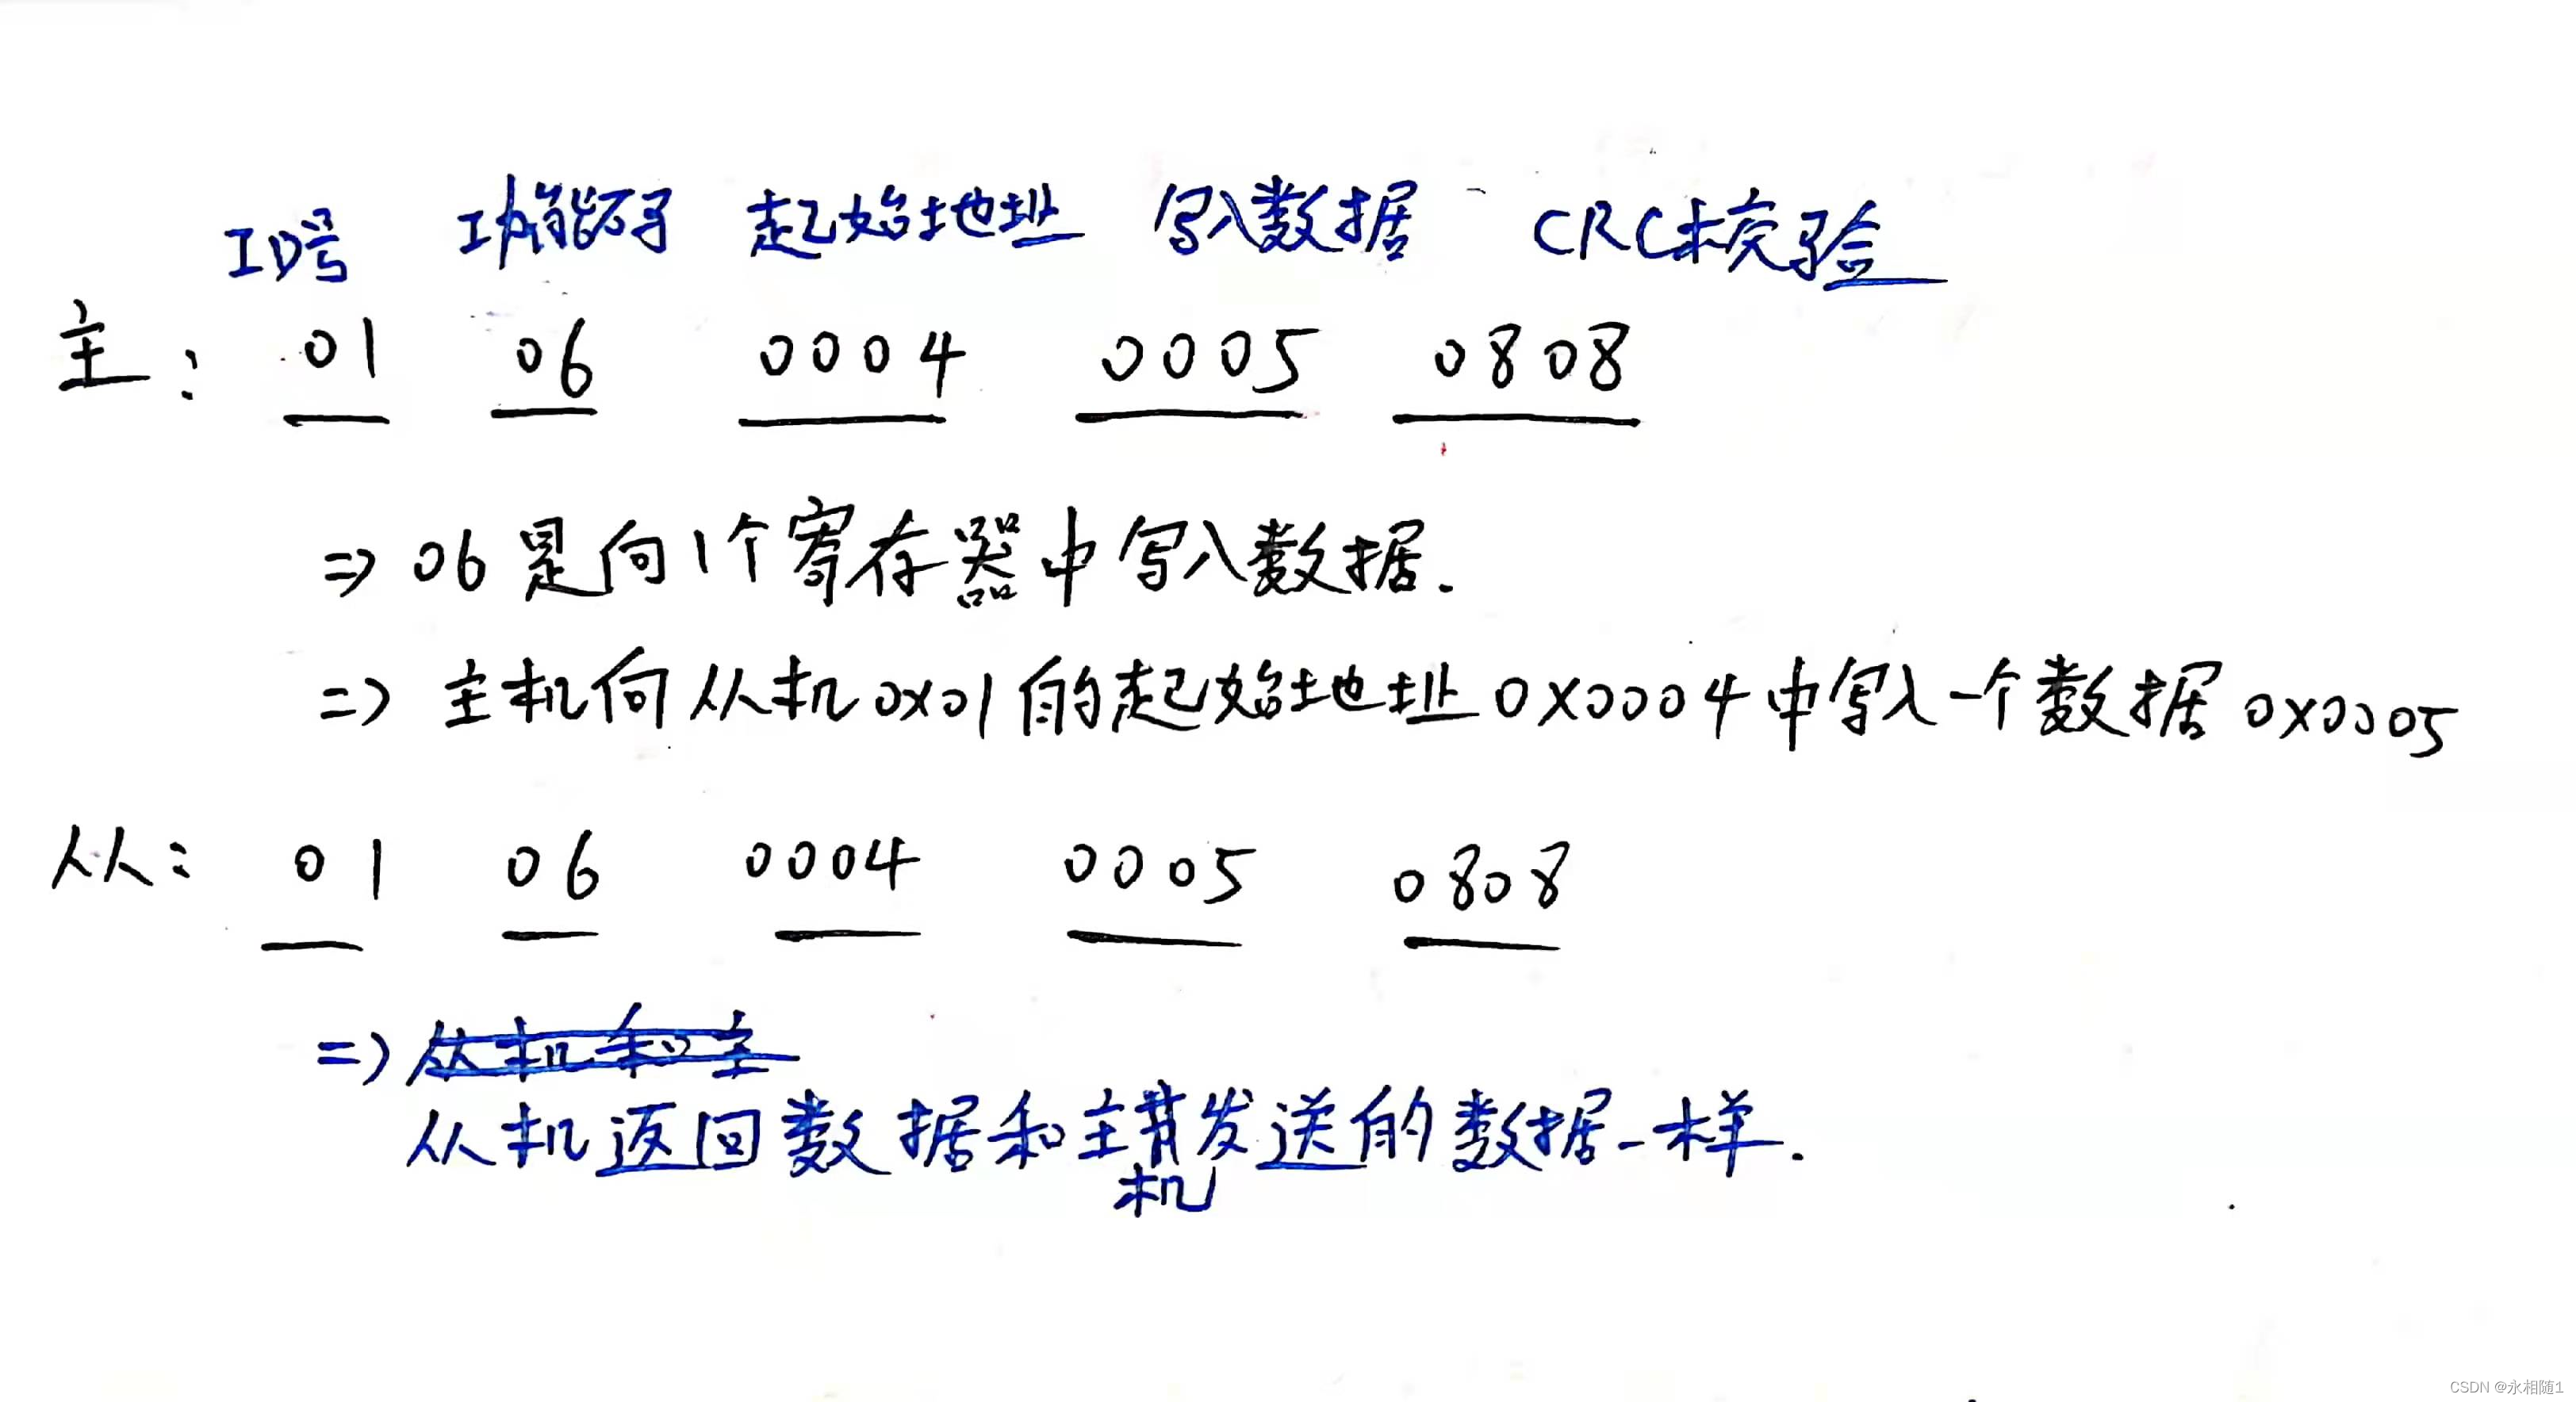 ID号 功能码 起始地址 写入数据 CRC校验
主: 01 06 0004 0005 0808
=> 06是向1个寄存器中写入数据.
=> 主机向从机0x01的起始地址0x0004中写入一个数据0x0005
从: 01 06 0004 0005 0808
=> 从机和主
从机返回数据和主机发送的数据一样.
CSDN @永相随1